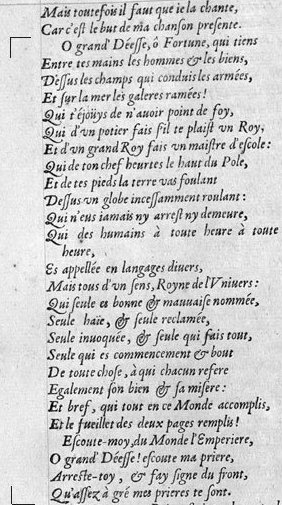 Mais toutefois il faut que ie la chante,
Car c'est le but de ma chanson presente.
O grand' Déesse, ô Fortune, qui tiens
Entre tes mains les hommes & les biens,
Dessus les champs qui conduis les armées,
Et sur la mer les galeres ramées!
Qui t'éjoüys de n'auoir point de foy,
Qui d'vn potier fais s'il te plaist vn Roy,
Et d'vn grand Roy fais vn maistre d'escole:
Qui de ton chef heurtes le haut du Pole,
Et de tes pieds la terre vas foulant
Dessus vn globe incessamment roulant:
Qui n'eus iamais ny arrest ny demeure,
Qui des humains à toute heure à toute
heure,
Es appellée en langages diuers,
Mais tous d'vn sens, Royne de l'Vniuers:
Qui seule es bonne & mauuaise nommée,
Seule haïe, & seule reclamée,
Seule inuoquée, & seule qui fais tout,
Seule qui es commencement & bout
De toute chose, à qui chacun refere
Egalement son bien & sa misere:
Et bref, qui tout en ce Monde accomplis,
Et le fueillet des deux pages remplis!
Escoute-moy, du Monde l'Emperiere,
O grand' Déesse! escoute ma priere,
Arreste-toy, & fay signe du front,
Qu'assez à gré mes prieres te sont.